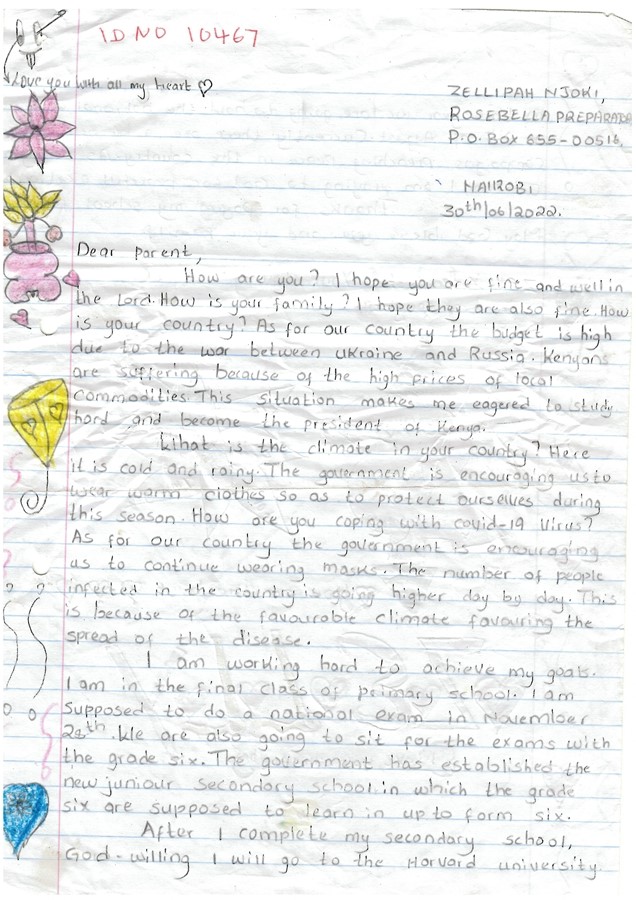 ID NO 10467
Love you with all my heart ♡
ZELLIPAH NJOKI,
ROSEBELLA PREPARARA
P.O. BOX 655-00516,
NAIROBI
30th/06/2022.
Dear parent,
How are you? I hope you are fine and well in
the Lord. How is your family? I hope they are also fine. How
is your country? As for our country the budget is high
due to the war between Ukraine and Russia. Kenyans
are suffering because of the high prices of local
commodities. This situation makes me eagered to study
hard and become the president of Kenya.
What is the climate in your country? Here
it is cold and rainy. The government is encouraging us to
wear warm clothes so as to protect ourselves during
this season. How are you coping with covid-19 Virus?
As for our country the government is encouraging
us to continue wearing masks. The number of people
infected in the country is going higher day by day. This
is because of the favourable climate favouring the
spread of the disease.
I am working hard to achieve my goals.
I am in the final class of primary school. I am
supposed to do a national exam in November
28th. We are also going to sit for the exams with
the grade six. The government has established the
new juniour secondary school in which the grade
six are supposed to learn in up to form six.
After I complete my secondary school,
God-willing I will go to the Harvard university